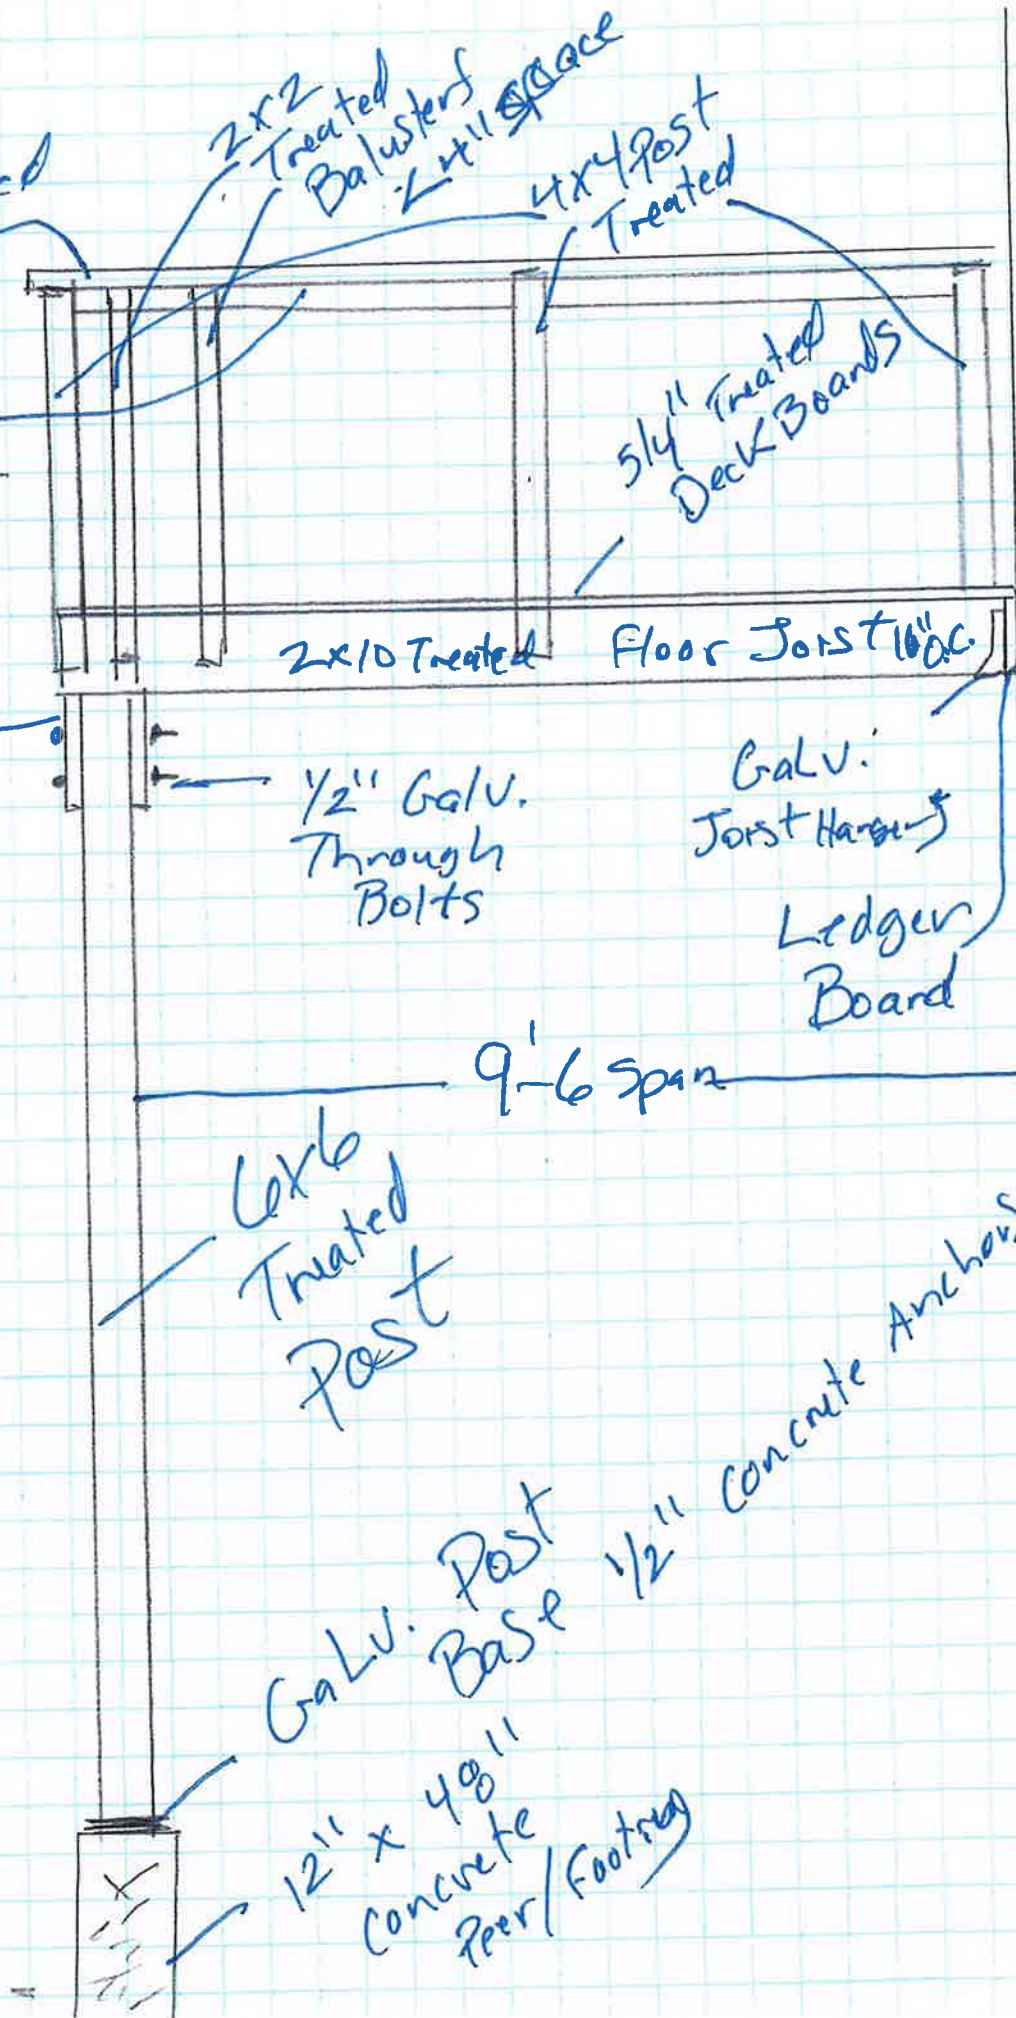 2x2
Treated
Balusters
< 4" space
4x4 Post
Treated
5/4" Treated
Deck Boards
2x10 Treated Floor Joist 16" O.C.
1/2" Galv.
Through
Bolts
Galv.
Joist Hangers
Ledger
Board
9'-6 Span
6x6
Treated
Post
Galv. Post
Base 1/2" Concrete Anchors
12" x 48"
Concrete
Peer/Footing